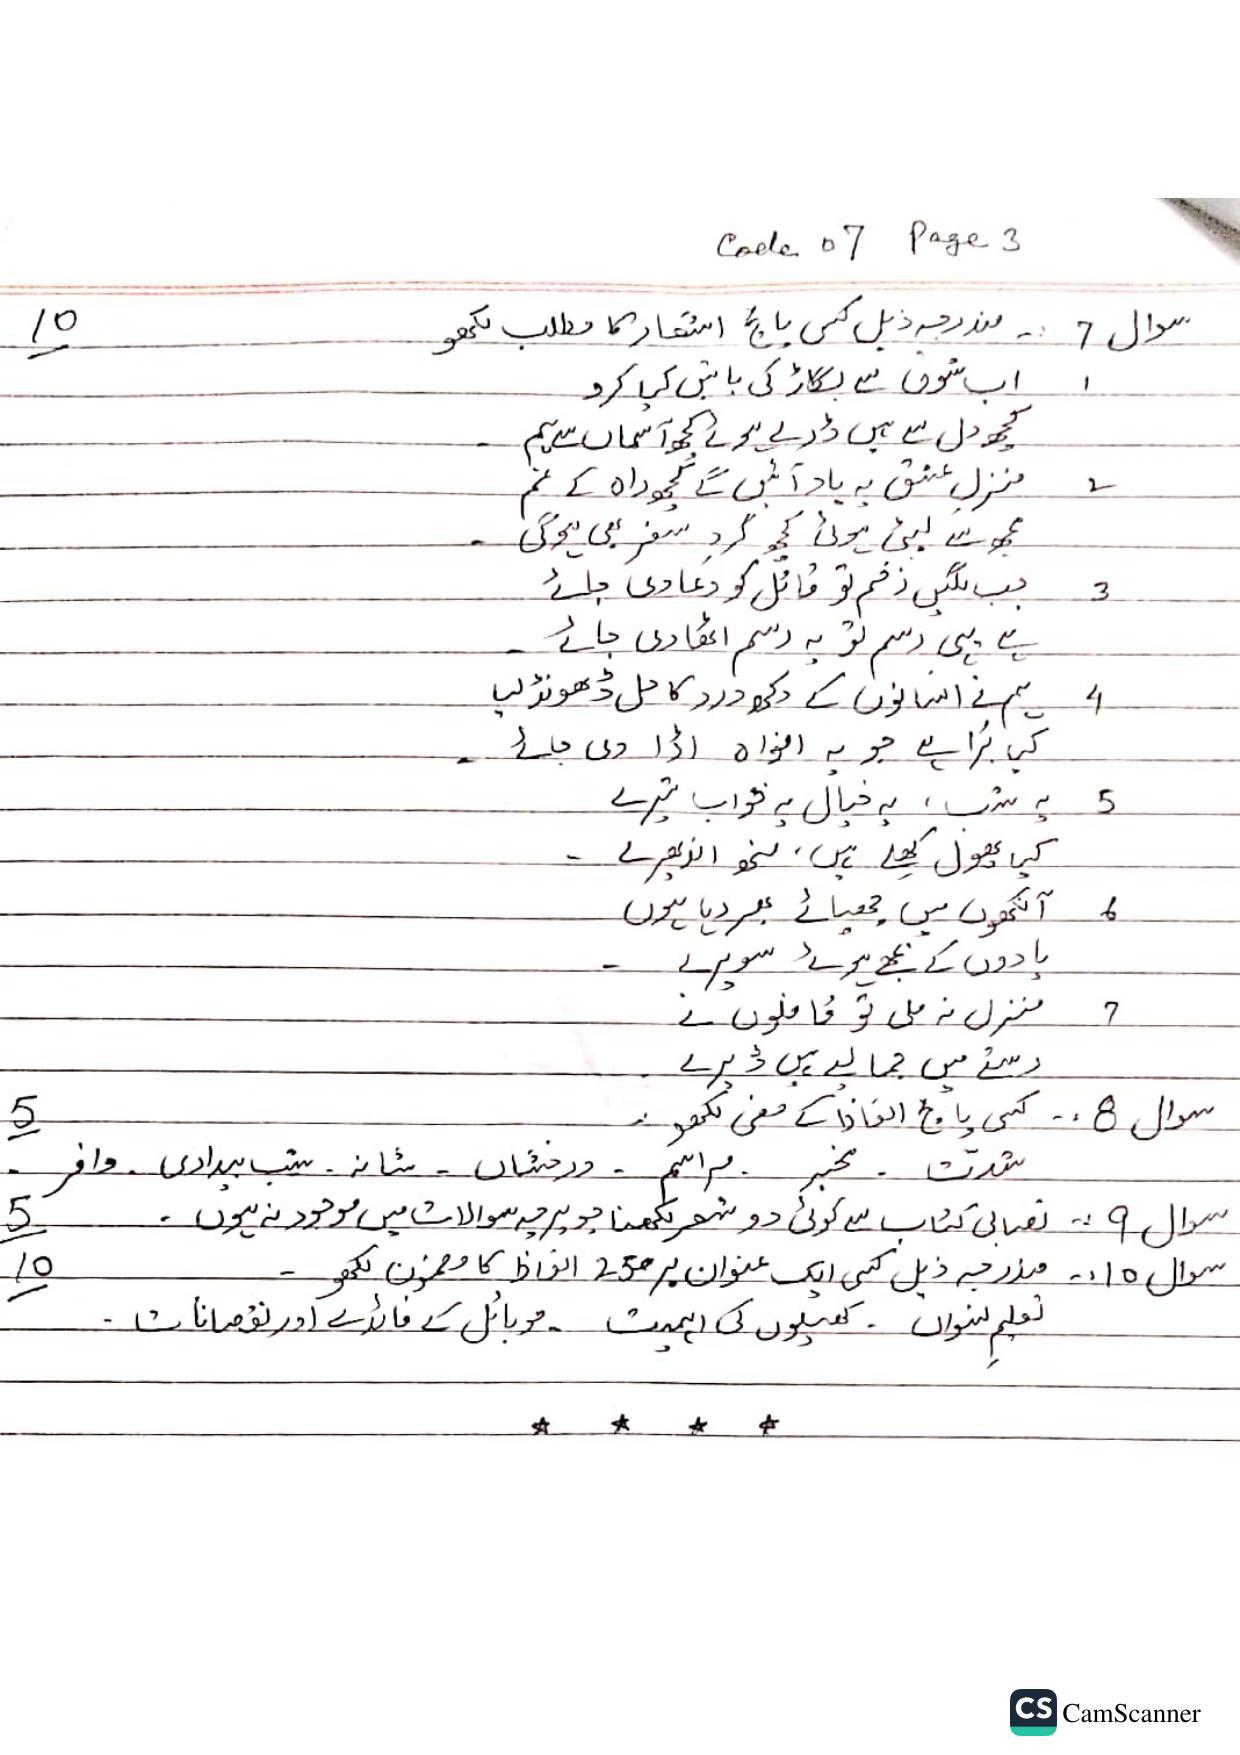 Code 07 Page 3
سوال 7 :۔ مندرجہ ذیل کسی پانچ اشعار کا مطلب لکھو 10
1 اب شوق سے بگاڑ کی باتیں کیا کرو
کچھ دل سے ہیں ڈرے ہوئے کچھ آسماں سے ہم ۔
2 منزلِ عشق پہ یاد آئیں گے کچھ راہ کے غم
مجھ سے لپٹی ہوئی کچھ گردِ سفر بھی ہوگی ۔
3 جب لگیں زخم تو قاتل کو دعا دی جائے
ہے یہی رسم تو یہ رسم اٹھا دی جائے ۔
4 ہم نے انسانوں کے دکھ درد کا حل ڈھونڈ لیا
کیا بُرا ہے جو یہ افواہ اڑا دی جائے ۔
5 یہ شب ، یہ خیال یہ خواب تیرے
کیا پھول کھلے ہیں ، منھ اندھیرے ۔
6 آنکھوں میں چھپائے پھر رہا ہوں
یادوں کے بجھے ہوئے سویرے ۔
7 منزل نہ ملی تو قافلوں نے
رستے میں جما لیے ہیں ڈیرے ۔
سوال 8 :۔ کسی پانچ الفاظ کے معنی لکھو :۔ 5
شدّت ۔ مخبر ۔ مراسم ۔ درخشاں ۔ شانہ ۔ شب بیداری ۔ وافر ۔
سوال 9 :۔ نصابی کتاب سے کوئی دو شعر لکھنا جو پرچہ سوالات میں موجود نہ ہوں ۔ 5
سوال 10 :۔ مندرجہ ذیل کسی ایک عنوان پر 250 الفاظ کا مضمون لکھو ۔ 10
تعلیمِ نسواں ۔ کھیلوں کی اہمیت ۔ موبائل کے فائدے اور نقصانات ۔
* * * *
CS CamScanner